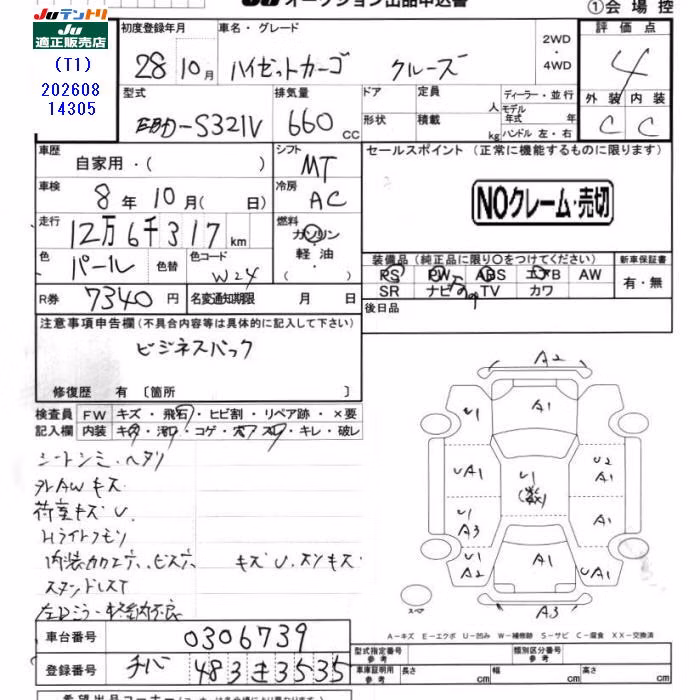 JUテントリ
JU 適正販売店
(T1)
202608
14305
JU オークション出品申込書
①会場控
初度登録年月
28年10月
車名・グレード
ハイゼットカーゴ クルーズ
2WD
・
4WD
評価点
4
外装 内装
C C
型式
EBD-S321V
排気量
660cc
ドア
定員
人
形状
積載
kg
ディーラー・並行
モデル年式 年
ハンドル 左・右
車歴
自家用・( )
シフト
MT
車検
8年10月( 日)
冷房
AC
走行
12万6千317km
燃料
ガソリン
・
軽油
・
色
パール
色替
色コード
W24
R券
7340円
名変通知期限 月 日
セールスポイント (正常に機能するものに限ります)
NOクレーム・売切
装備品(純正品に限り〇をつけてください)
新車保証書
PS PW ABS エアB AW
SR ナビ TV カワ
有・無
後日品
注意事項申告欄(不具合内容等は具体的に記入して下さい)
ビジネスパック
修復歴 有 〔箇所 〕
検査員記入欄
FW キズ・飛石・ヒビ割・リペア跡・×要
内装 キズ・汚れ・コゲ・穴・スレ・キレ・破レ
シートシミ・ヘタリ
外AWキズ
荷室キズU
Hライトクモリ
内装カカエ穴、ビス穴 キズU、スリキズ
スタンドレスT
A2
U1 A1
UA1 U1 (数) U2 A1
U1 A3 A1
U1 A2 A1 UA1
A3
スペア
A-キズ E-エクボ U-凹み W-補修跡 S-サビ C-腐食 XX-交換済
車台番号
0306739
登録番号
チバ 483 き 3535
型式指定番号 参考
類別区分番号 参考
車庫証明用 参考
長さ cm
幅 cm
高さ cm
希望出品コーナー